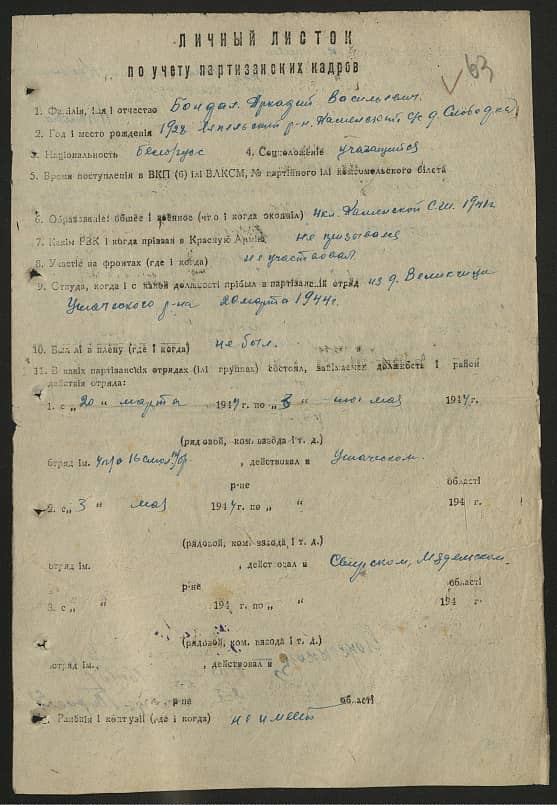 ЛИЧНЫЙ ЛИСТОК
по учету партизанских кадров
63
1. Фамілія, імя і отчество Бондал. Аркадий Васильевич.
2. Год і место рождения 1928 Лепельский р-н. Каменский с/с д. Слободка
3. Національность белорусс 4. Соцположеніе учащийся
5. Время поступления в ВКП (б) ілі ВЛКСМ, № партійного ілі комсомольского білета
6. Образованіе: общее і военное (что і когда окончіл) 4 кл. Каменской С.Ш. 1941г
7. Какім РВК і когда прізван в Красную Армію не призывался
8. Участіе на фронтах (где і когда) не участвовал
9. Откуда, когда і с какой должності прібыл в партізанскій отряд из д. Великчици
Ушачского р-на 20 марта 1944г.
10. Был лі в плену (где і когда) не был.
11. В какіх партізанскіх отрядах (ілі группах) состоял, занімаемая должность і район
действія отряда:
1. с „20 " марта 1944 г. по „ 3 " мая 1944 г.
(рядовой, ком. взвода і т. д.)
отряд ім. , действовал в Ушачском.
р-не области
2. с „ 3 " мая 1944 г. по „ " 194 г.
(рядовой, ком. взвода і т. д.)
отряд ім. , действовал в Свирском, Мядельском.
р-не області
3. с „ " 194 г. по „ " 194 г.
(рядовой, ком. взвода і т. д.)
отряд ім. , действовал в
р-не області
2. Раненія і контузії (где і когда) не имеет